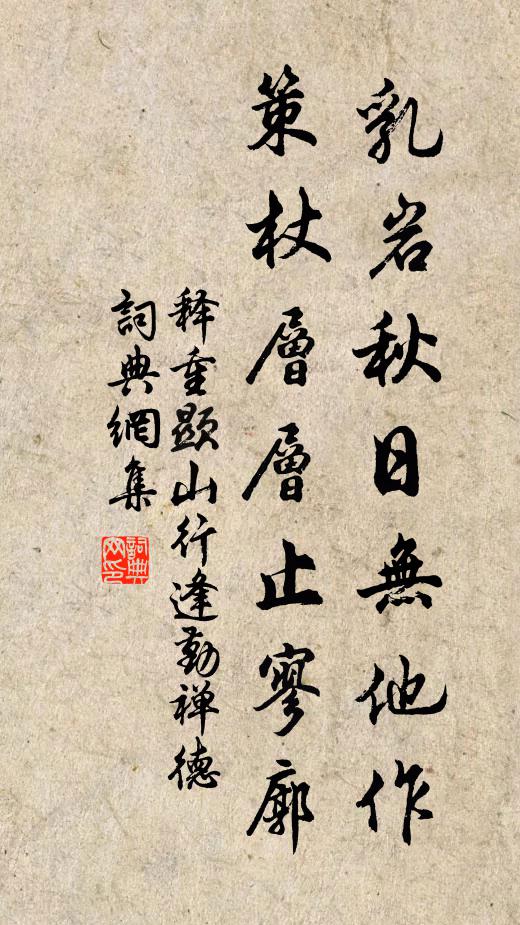 乳岩秋日無他作
策杖層層止寥廓
释重顯山行逢勤禅德
詞典網集
詞典網印